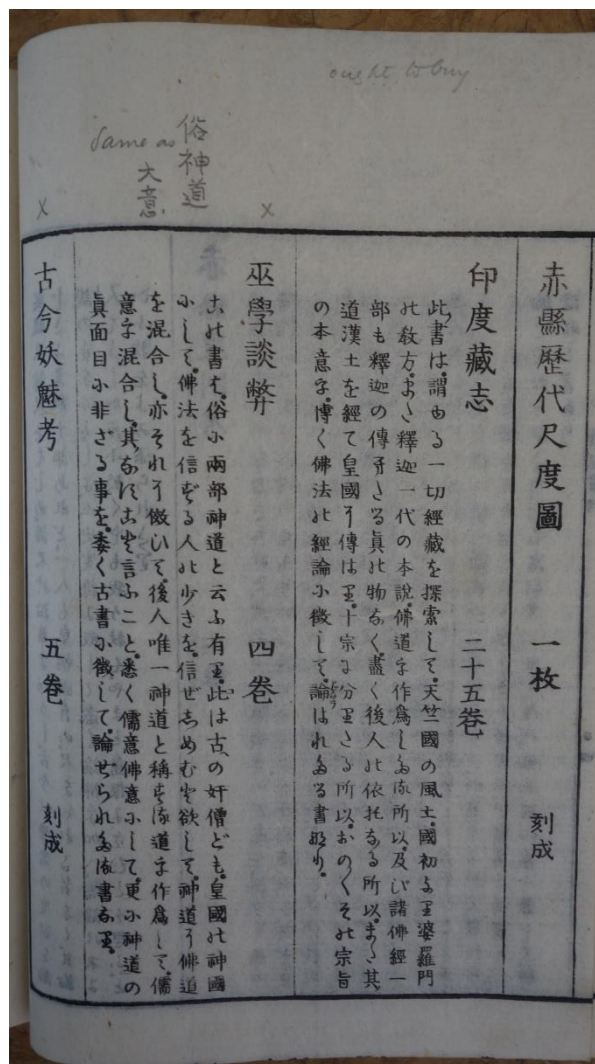 ought to buy
Same as
俗神道
大意
x
x
赤縣歷代尺度圖 一枚 刻成
印度藏志 二十五卷
此書は、謂ゆる一切經藏を探索して、天竺國の風土、國初より婆羅門
の敎方、また釋迦一代の本說、佛道を作爲したる所以、及び諸佛經一
部も釋迦の傳へたる眞の物なく、盡く後人の依托なる所以、また其
道漢土を經て皇國に傳はり、十宗に分りたる所以、おの〳〵その宗旨
の本意を、博く佛法の經論に徵して、論はれたる書なり。
巫學談弊 四卷
この書は、俗に兩部神道と云ふ有り、此は古への奸僧ども、皇國の神國
にして、佛法を信ずる人の少きを、信ぜしめむと欲して、神道に佛道
を混合し、亦それに傚ひて、後人唯一神道と稱する道を作爲して、儒
意を混合し、其なにくれと言ふこと、悉く儒意佛意にして、更に神道の
眞面目に非ざる事を、委く古書に徵して、論ぜられたる書なり。
古今妖魅考 五卷 刻成